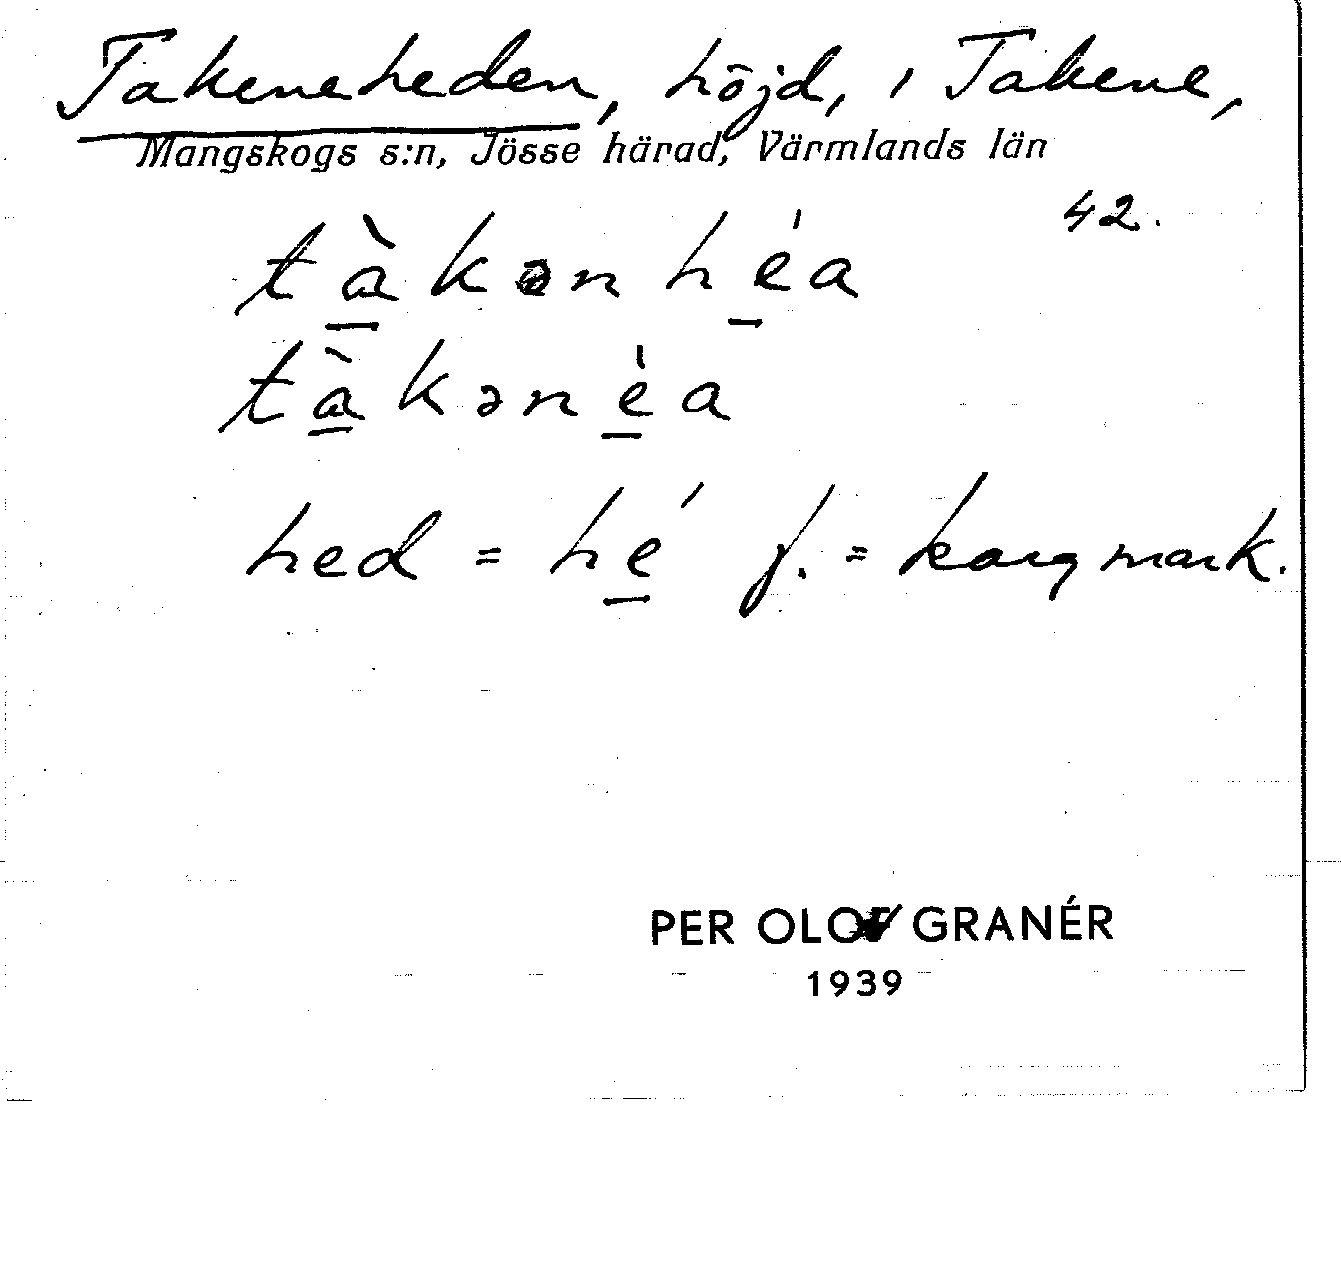 Takeneheden, höjd, i Takene,
Mangskogs s:n, Jösse härad, Värmlands län
42.
tàkənhéa
tàkənèa
hed = hé f. = karg mark.
PER OLOV GRANÉR
1939